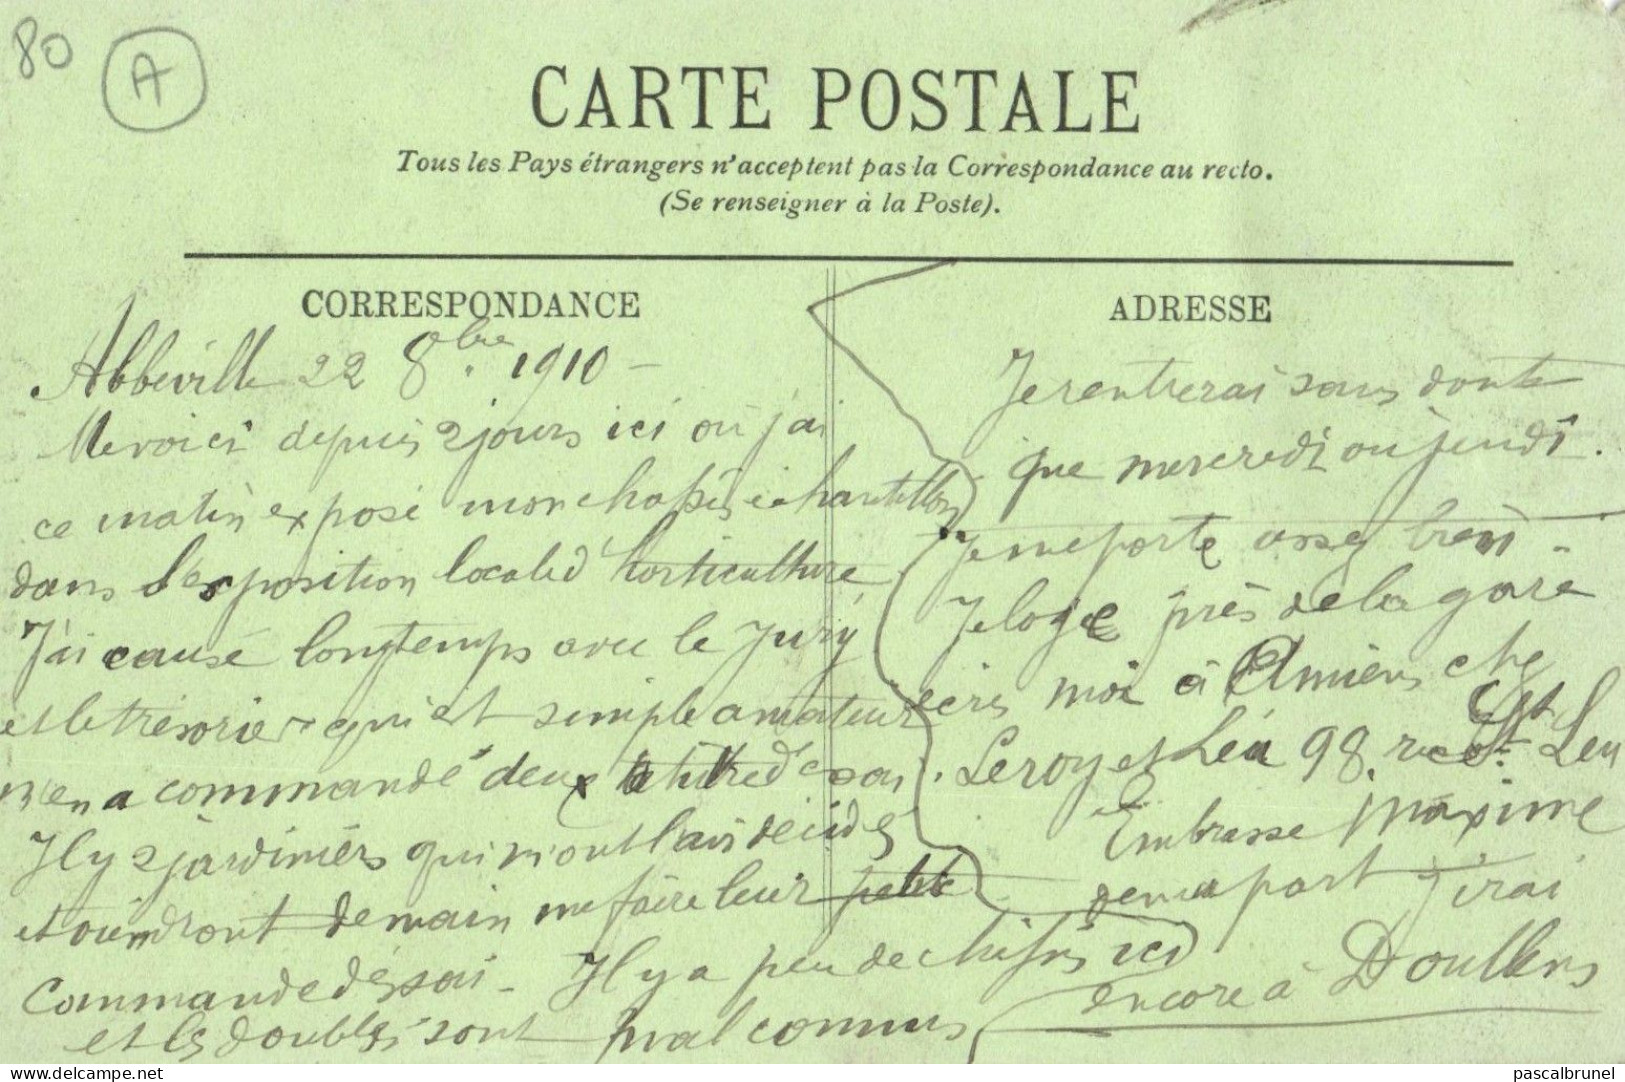 80 A
CARTE POSTALE
Tous les Pays étrangers n'acceptent pas la Correspondance au recto.
(Se renseigner à la Poste).
CORRESPONDANCE
Abbeville 22 8bre 1910 -
Me voici depuis 2 jours ici où j'ai
ce matin exposé mon chassis échantillon
dans l'exposition locale d'horticulture
J'ai causé longtemps avec le Jury
et le trésorier qui est simple amateur
m'en a commandé deux à titre d'essai.
Il y a 2 jardiniers qui m'ont l'air décidés
et viendront demain me faire leur petite
commande d'essai - Il y a peu de chassis ici
et les doubles sont mal connus
ADRESSE
Je rentrerai sans doute
que mercredi ou jeudi.
Je me porte assez bien -
Je loge près de la gare
écris moi à Amiens chez
Leroy et Léa 98 rue St Leu
Embrasse Maxime
de ma part J'irai
encore à Doullens
delcampe.net
pascalbrunel